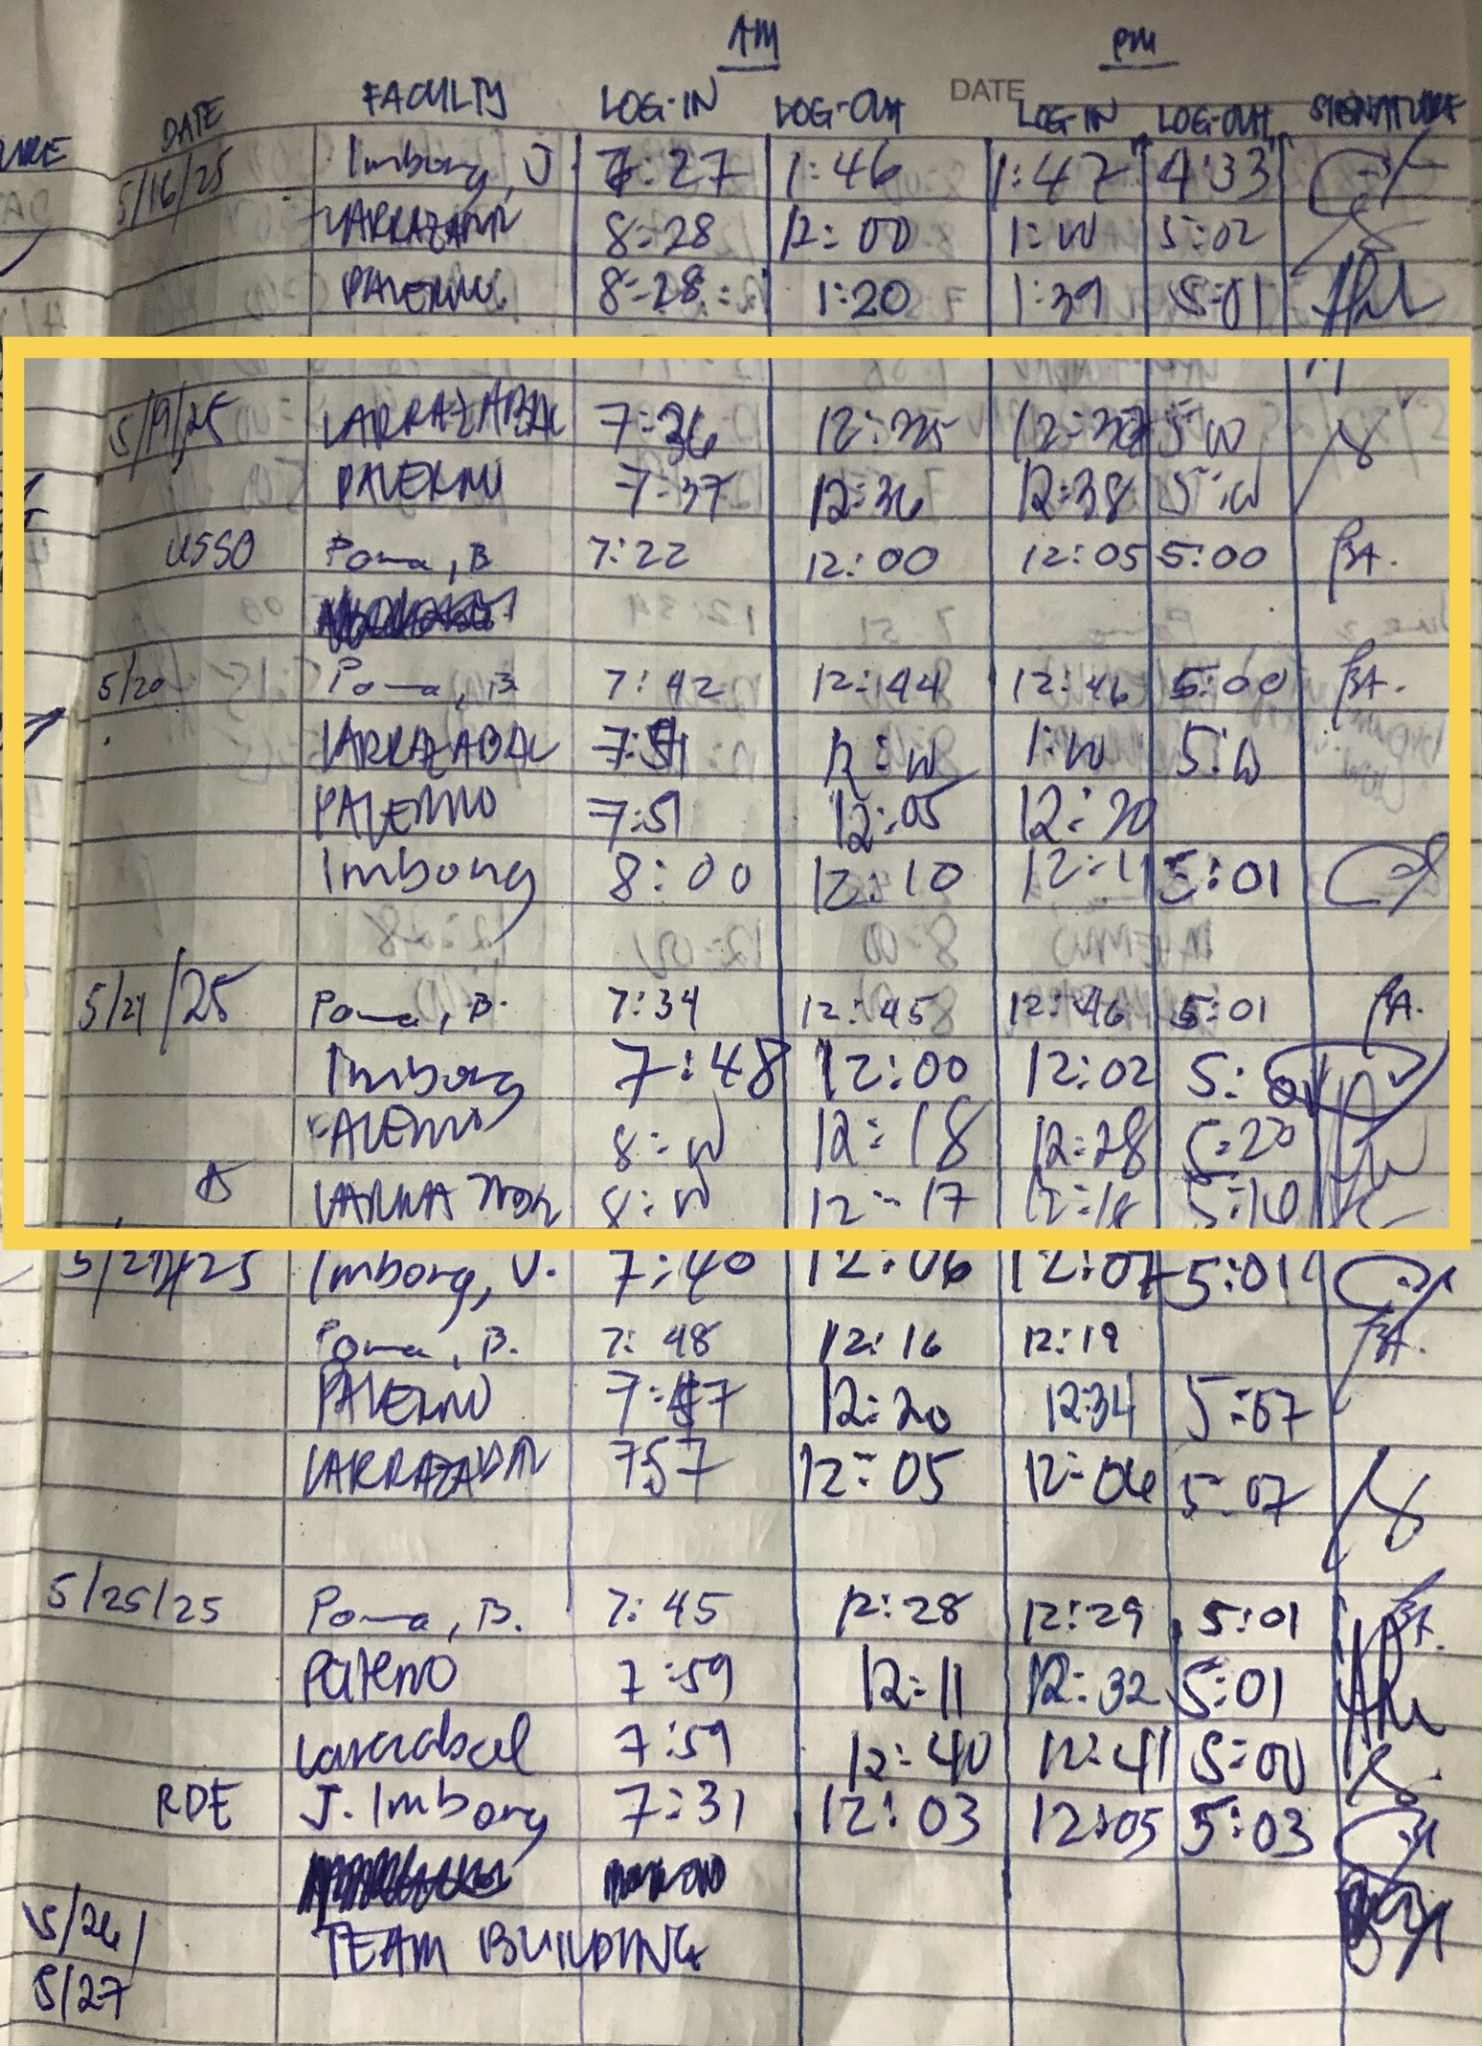 AM PM
DATE
DATE FACULTY LOG-IN LOG-OUT LOG-IN LOG-OUT SIGNATURE
5/16/25 Imbong, J 7:27 1:46 1:47 4:33
8:28 12:00 1:00 5:02
PALERMO 8:28 1:20 1:39 5:01
5/19/25 LARRAZABAL 7:36 12:35 5:00
PALERMO 7:37 12:36 12:38 5:00
USSO Poma, B 7:22 12:00 12:05 5:00 BA.
5/20 Poma, B 7:42 12:44 12:46 5:00 BA.
LARRAZABAL 7:51 12:00 1:00 5:00
PALERMO 7:51 12:05 12:20
Imbong 8:00 12:10 12:11 5:01
5/21/25 Poma, B. 7:34 12:45 12:46 5:01 BA.
Imbong 7:48 12:00 12:02
PALERMO 8:00 12:18 12:28 5:20
8:00 12:17 12:18 5:10
Imbong, J. 7:40 12:06 12:07 5:01
Poma, B. 7:48 12:16 12:19 BA.
PALERMO 7:47 12:20 12:34 5:07
LARRAZABAL 7:57 12:05 12:06 5:07
5/25/25 Poma, B. 7:45 12:28 12:29 5:01 BA.
Palermo 7:59 12:11 12:32 5:01
Larrazabal 7:59 12:40 12:41 5:00
RDE J. Imbong 7:31 12:03 12:05 5:03
5/26/ TEAM BUILDING
5/27